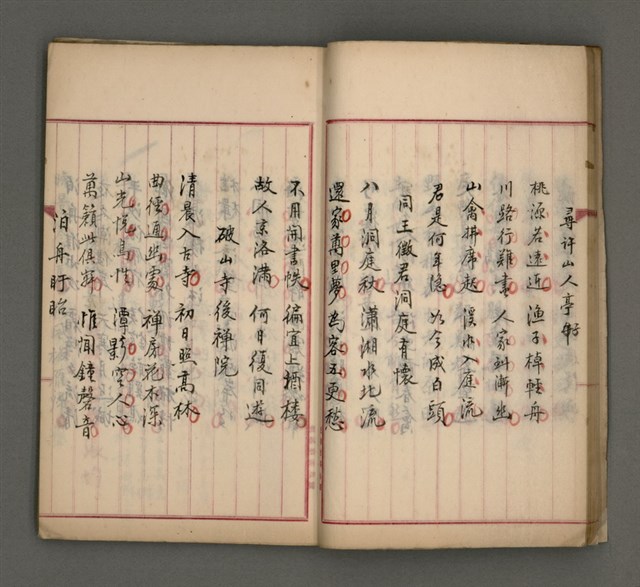 尋許山人亭子
桃源若遠近 漁子棹輕舟
川路行難盡 人家到漸幽
山禽拂席起 溪水入庭流
君是何年隱 如今成白頭
同王徵君洞庭有懷
八月洞庭秋 瀟湘水北流
還家萬里夢 為客五更愁
不用開書帙 偏宜上酒樓
故人京洛滿 何日復同遊
破山寺後禪院
清晨入古寺 初日照高林
曲徑通幽處 禪房花木深
山光悅鳥性 潭影空人心
萬籟此俱寂 惟聞鐘磬音
泊舟盱眙